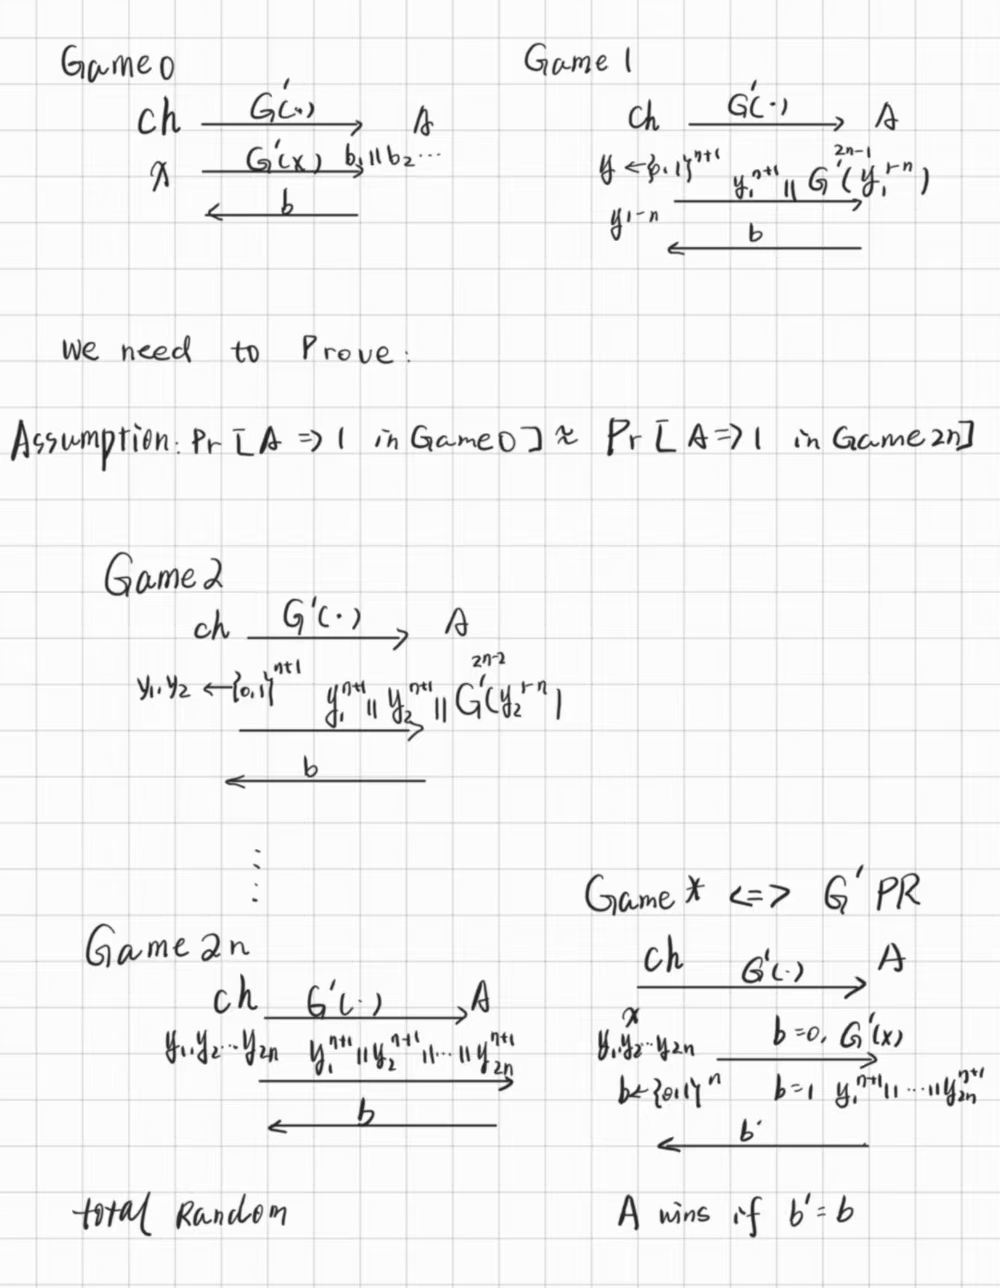 Game 0
ch G'(·) A
x G'(x) b₁||b₂···
b
Game 1
ch G'(·) A
y ← {0,1}ⁿ⁺¹ y₁ⁿ⁺¹ || G'²ⁿ⁻¹(y₁¹⁻ⁿ)
y¹⁻ⁿ
b
We need to Prove:
Assumption: Pr [A => 1 in Game 0] ≈ Pr [A => 1 in Game 2n]
Game 2
ch G'(·) A
y₁,y₂ ← {0,1}ⁿ⁺¹ y₁ⁿ⁺¹ || y₂ⁿ⁺¹ || G'²ⁿ⁻²(y₂¹⁻ⁿ)
b
Game 2n
ch G'(·) A
y₁,y₂···y₂ₙ y₁ⁿ⁺¹ || y₂ⁿ⁺¹ || ··· || y₂ₙⁿ⁺¹
b
total Random
Game * <=> G' PR
ch G'(·) A
x
y₁,y₂···y₂ₙ b=0, G'(x)
b ← {0,1}ⁿ b=1 y₁ⁿ⁺¹ || ··· || y₂ₙⁿ⁺¹
b'
A wins if b' = b